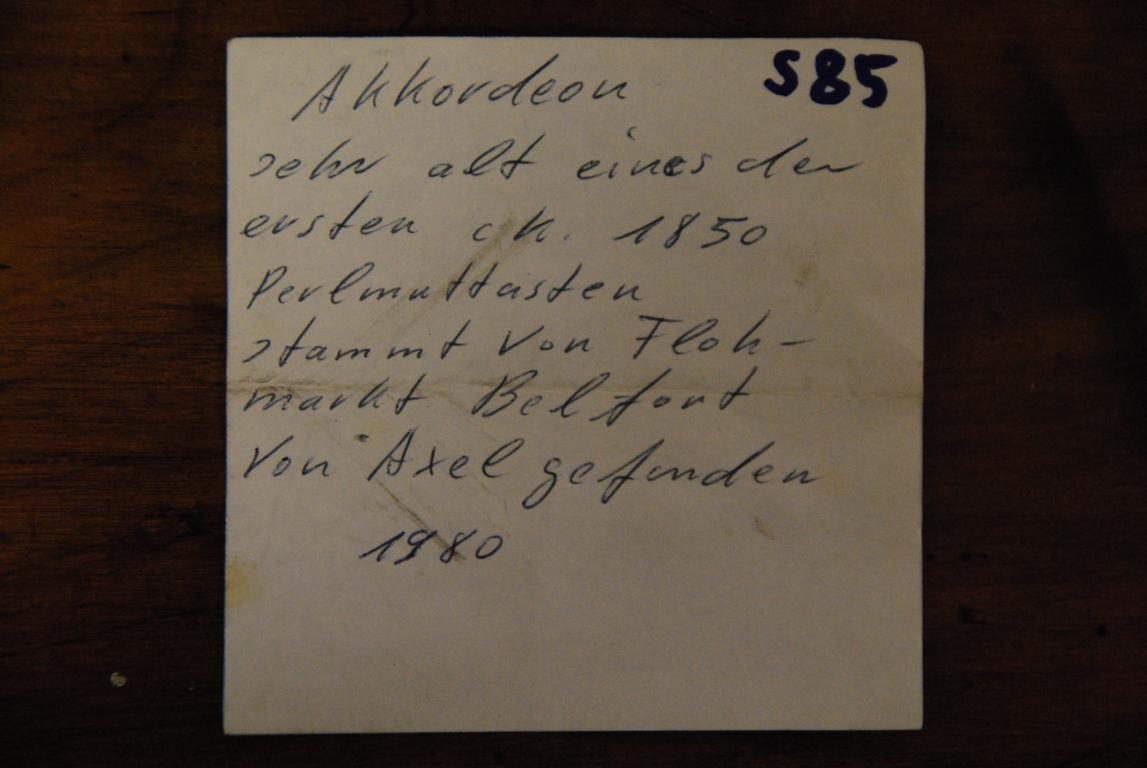 Akkordeon S85
sehr alt eines der
ersten ca. 1850
Perlmuttasten
stammt von Floh-
markt Belfort
von Axel gefunden
1980